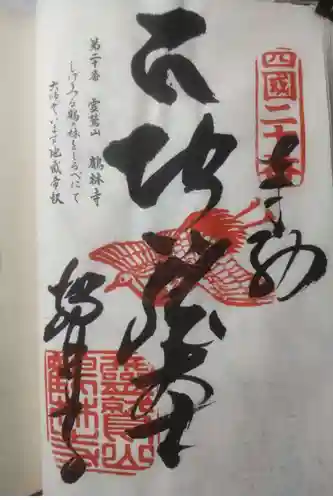 四國二十番
奉納
地蔵大士
第二十番 霊鷲山 鶴林寺
しげりつる鶴の林をしるべにて
大師ぞいます地蔵帝釈
鶴林寺
霊鷲山
鶴林寺